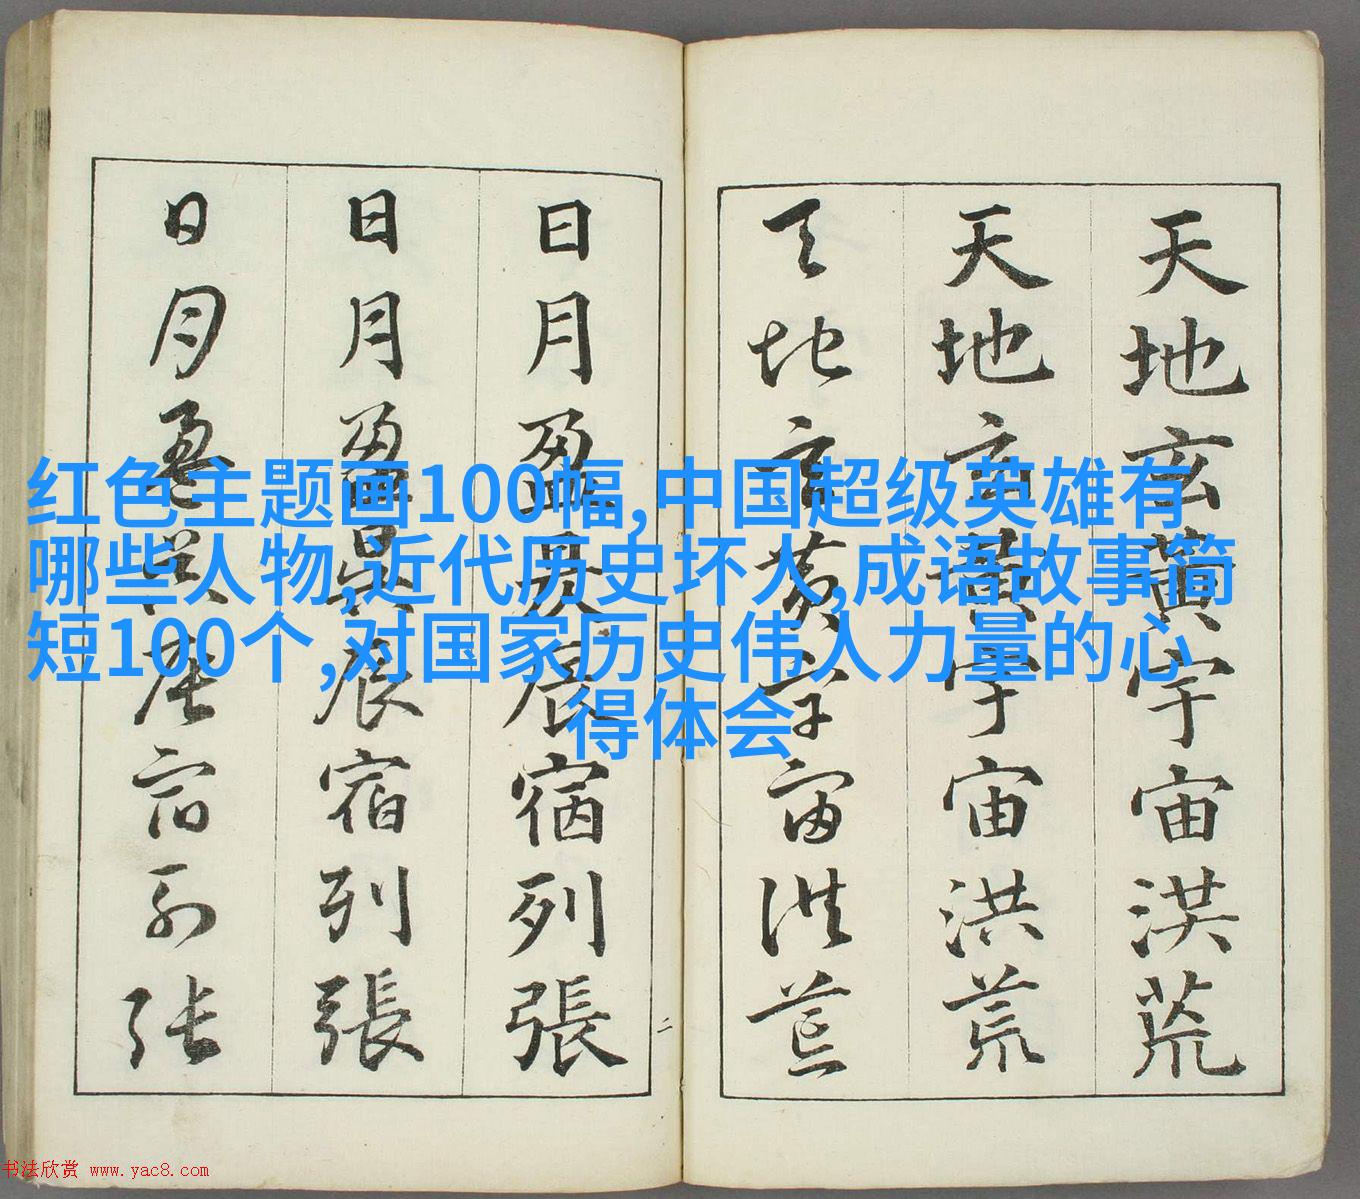 天地玄黃宇宙洪荒
天地玄黃宇宙洪荒
天地玄黃宇宙洪荒
日月盈昃辰宿列張
日月盈昃辰宿列張
日月盈昃辰宿列張
二
红色主题画100幅,中国超级英雄有
哪些人物,近代历史坏人,成语故事简
短100个,对国家历史伟人力量的心
得体会
书法欣赏 www.yac8.com